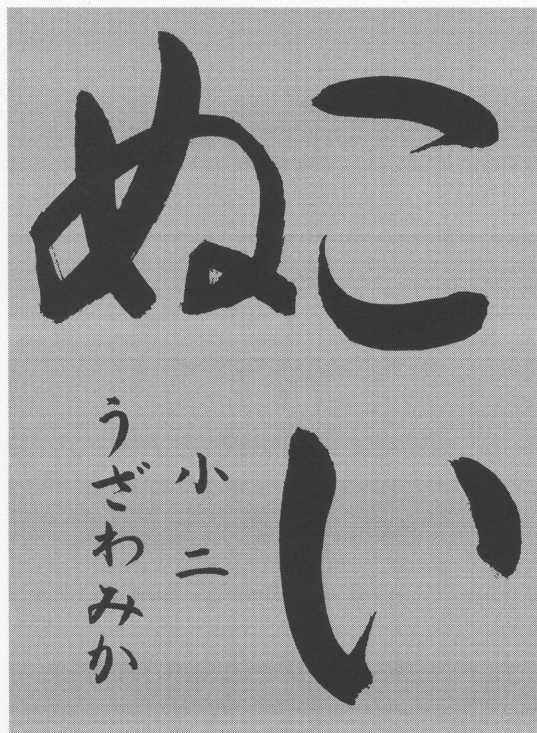 こい
ぬ
小二
うざわみか